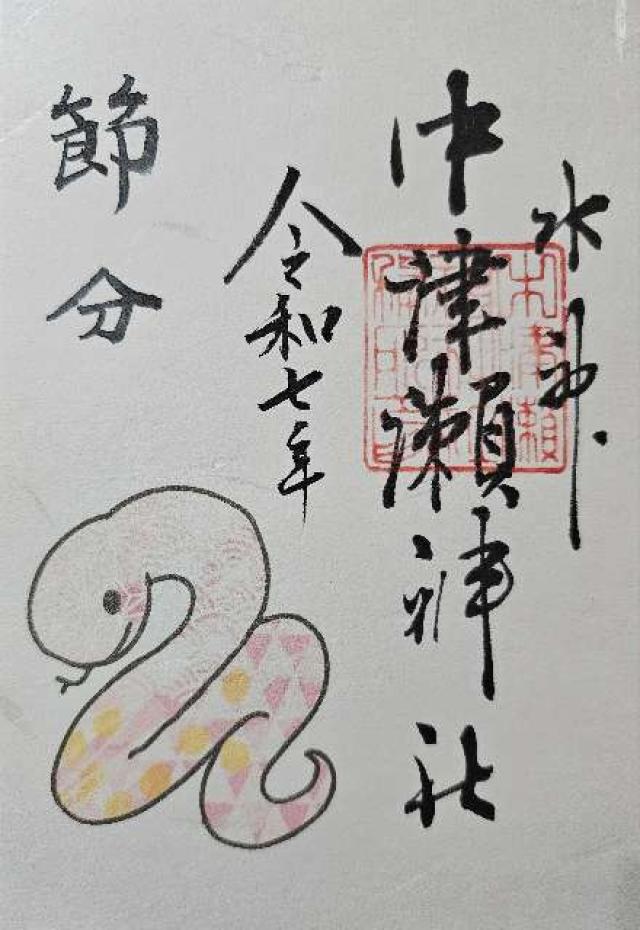 水神
中津瀬神社
令和七年
節分